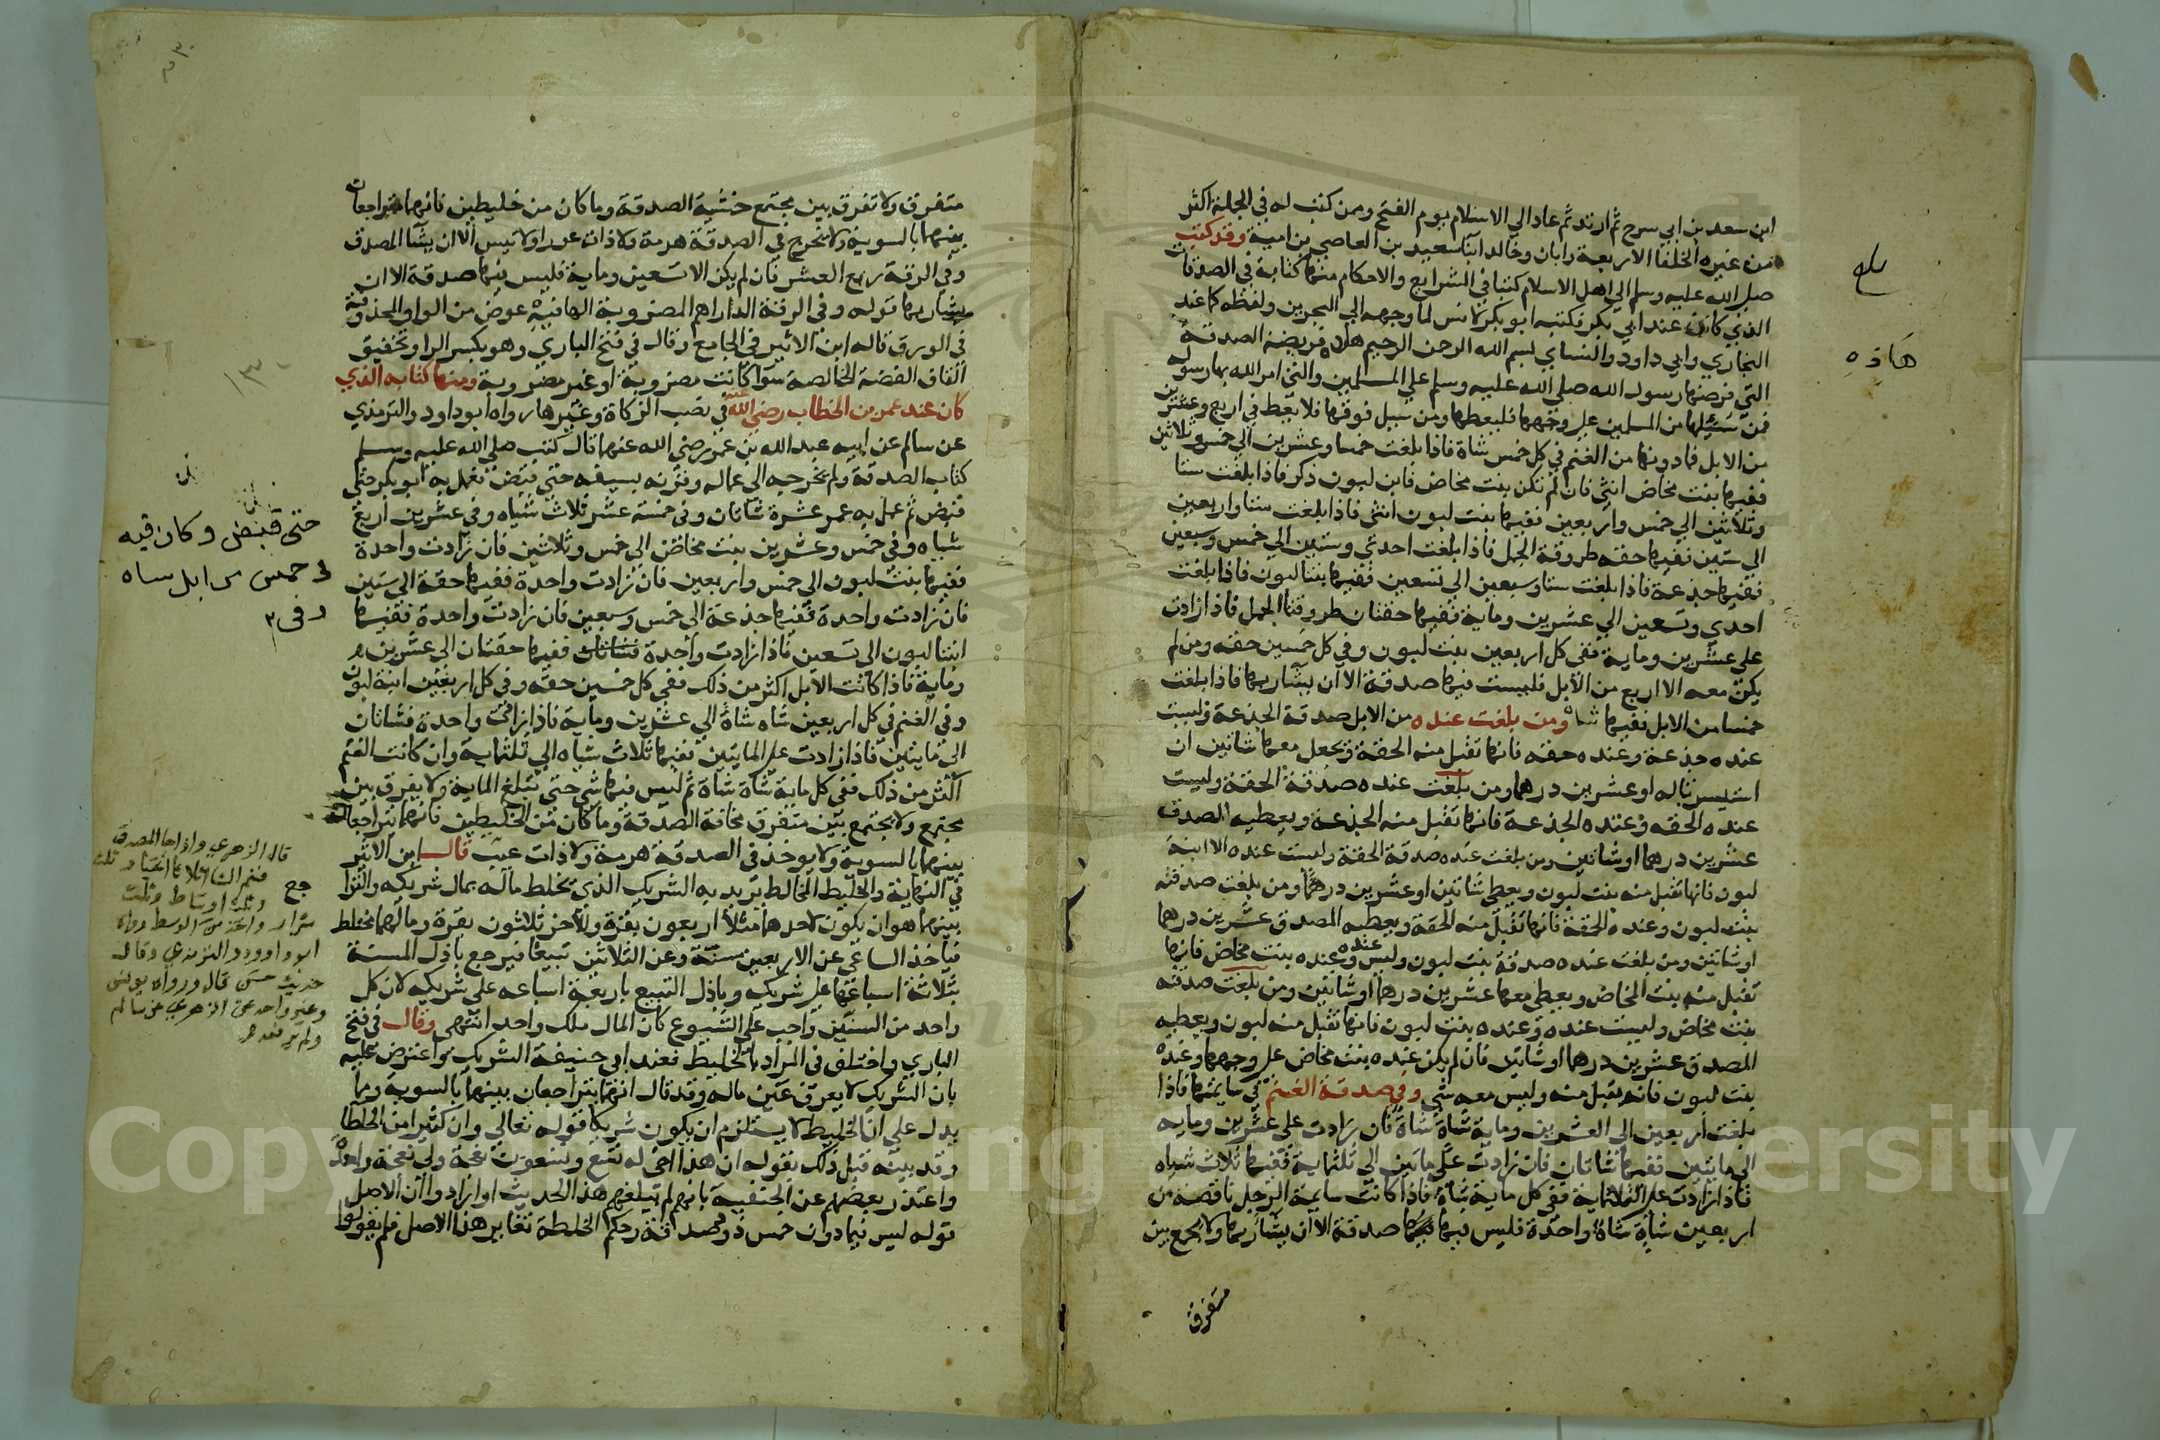 ابن سعد بن ابي سرح ثم ارتد ثم عاد الي الاسلام يوم الفتح وممن كتب له في الجلة اكثر
من غيره الخلفا الاربعة وابان وخالد ابنا سعيد بن العاصي بن امية وقد كتب
صلي الله عليه وسلم الي اهل الاسلام كتبا في الشرايع والاحكام منها كتابه في الصدقات
الذي كان عند ابي بكر فكتبه ابو بكر لانس لما وجهه الي البحرين ولفظه كما عند
البخاري وابي داود والنساي بسم الله الرحمن الرحيم هذه فريضة الصدقة
التي فرضها رسول الله صلي الله عليه وسلم علي المسلمين والتي امر الله بها رسوله
فمن سئلها من المسلمين علي وجهها فليعطها ومن سيل فوقها فلا يعط في اربع وعشرين
من الابل فما دونها من الغنم في كل خمس شاة فاذا بلغت خمسا وعشرين الي خمس وثلاثين
ففيها بنت مخاض انثي فان لم تكن بنت مخاض فابن لبون ذكر فاذا بلغت ستا
وثلاثين الي خمس واربعين ففيها بنت لبون انثي فاذا بلغت ستا واربعين
الي ستين ففيها حقه طروقة الجمل فاذا بلغت احدي وستين الي خمس وسبعين
ففيها جذعة فاذا بلغت ستا وسبعين الي تسعين ففيها بنتا لبون فاذا بلغت
احدي وتسعين الي عشرين وماية ففيها حقتان طروقتا الجمل فاذا زادت
علي عشرين وماية ففي كل اربعين بنت لبون وفي كل خمسين حقه ومن لم
يكن معه الا اربع من الابل فليست فيها صدقة الا ان يشا ربها فاذا بلغت
خمسا من الابل ففيها شاه ومن بلغت عنده من الابل صدقة الجذعة وليست
عنده جذعة وعنده حقه فانها تقبل منه الحقة ويجعل معها شاتين ان
استيسرتا له او عشرين درهما ومن بلغت عنده صدقة الحقة وليست
عنده الحقه وعنده الجذعة فانها تقبل منه الجذعة ويعطيه المصدق
عشرين درهما او شاتين ومن بلغت عنده صدقة الحقة وليست عنده الا ابنة
لبون فانها تقبل منه بنت لبون ويعطي شاتين او عشرين درهما ومن بلغت صدقته
بنت لبون وعنده الحقة فانها تقبل منه الحقة ويعطيه المصدق عشرين درهما
او شاتين ومن بلغت عنده صدقة بنت لبون وليس عنده وعنده بنت مخاض فانها
تقبل منه بنت المخاض ويعطي معها عشرين درهما او شاتين ومن بلغت صدقته
بنت مخاض وليست عنده وعنده بنت لبون فانها تقبل منه بنت لبون ويعطيه
المصدق عشرين درهما او شاتين فان لم يكن عنده بنت مخاض علي وجهها وعنده
بنت لبون فانه يقبل منه وليس معه شي وفي صدقة الغنم في سايمتها فاذا
بلغت اربعين الي العشرين وماية شاة شاة فان زادت علي عشرين وماية
الي مايتين ففيها شاتان فان زادت علي مايتين الي ثلثماية ففيها ثلاث شياه
فاذا زادت علي الثلثماية ففي كل ماية شاة فاذا كانت سايمة الرجل ناقصة من
اربعين شاة شاة واحدة فليس فيها صدقة الا ان يشا ربها ولا يجمع بين
متفرق
هاذه
متفرق ولا تفرق بين مجتمع خشية الصدقة وما كان من خليطين فانهما يتراجعان
بينهما بالسوية ولا يخرج في الصدقة هرمة ولا ذات عوار ولا تيس الا ان يشا المصدق
وفي الرقة ربع العشر فان لم يكن الا تسعين وماية فليس فيها صدقة الا ان
يشا ربها قوله وفي الرقة الدراهم المضروبة الها فيه عوض من الواو المحذوفة
في الورق قاله ابن الاثير في الجامع وقال في فتح الباري وهو بكسر الرا وتخفيف
القاف الفضة الخالصة سوا كانت مضروبة او غير مضروبة ومنها كتابه الذي
كان عند عمر بن الخطاب رضي الله عنه في نصب الزكاة وغيرها رواه ابو داود والترمذي
عن سالم عن ابيه عبد الله بن عمر رضي الله عنهما قال كتب صلي الله عليه وسلم
كتاب الصدقة ولم يخرجه الي عماله وقرنه بسيفه حتي قبض فعمل به ابو بكر حتي
قبض ثم عمل به عمر عشرة شاتان وفي خمسة عشر ثلاث شياه وفي عشرين اربع
شياه وفي خمس وعشرين بنت مخاض الي خمس وثلاثين فان زادت واحدة
ففيها بنت لبون الي خمس واربعين فان زادت واحدة ففيها حقة الي ستين
فان زادت واحدة ففيها جذعة الي خمس وسبعين فان زادت واحدة ففيها
ابنتا لبون الي تسعين فاذا زادت واحدة فشاتان ففيها حقتان الي عشرين
وماية فاذا كانت الابل اكثر من ذلك ففي كل خمسين حقه وفي كل اربعين ابنة لبون
وفي الغنم في كل اربعين شاه شاة الي عشرين وماية فاذا زادت واحدة فشاتان
الي مايتين فاذا زادت علي المايتين ففيها ثلاث شياه الي ثلثماية وان كانت الغنم
اكثر من ذلك ففي كل ماية شاة شاة ثم ليس فيها شي حتي تبلغ الماية ولا يفرق بين
مجتمع ولا يجتمع بين متفرق مخافة الصدقة وما كان من الخليطين فانهما يتراجعان
بينهما بالسوية ولا يوخذ في الصدقة هرمة ولا ذات عيب قال ابن الاثير
في النهاية والخليط المخالط يريد به الشريك الذي يخلط ماله بمال شريكه والتراجع
بينهما هو ان يكون لاحدهما مثلا اربعون بقرة وللاخر ثلاثون بقرة ومالهما مختلط
فياخذ الساعي عن الاربعين مسنة وعن الثلاثين تبيعا فيرجع باذل المسنة
بثلاثة اسباعها علي شريكه وباذل التبيع باربعة اسباعه علي شريكه لان كل
واحد من السنين واجب علي الشيوع كان المال ملك واحد انتهي وقال في فتح
الباري واختلف في المراد بالخليط فعند ابي حنيفة الشريك واعترض عليه
بان الشريك لا يعرف عين ماله وقد قال انهما يتراجعان بينهما بالسوية ومما
يدل علي ان الخليط لا يستلزم ان يكون شريكا قوله تعالي وان كثيرا من الخلطا
وقد بينه قبل ذلك بقوله ان هذا اخي له تسع وتسعون نعجة ولي نعجة واحدة
واعتذر بعضهم عن الحنفية بانهم لم يبلغهم هذا الحديث او ارادوا ان الاصل
قوله ليس فيما دون خمس ذود صدقة وحكم الخلطة تغاير هذا الاصل فلم يقولوا
حتي قبض وكان فيه
في خمس من ابل شاه
وفي
١٣٠
قال الزهري واذا جا المصدق
قسم الشا اثلاثا ثلث خيار وثلث
وثلث اوساط وثلث
شرار واخذ من الوسط رواه
ابو داوود والترمذي وقال
حديث حسن قال ورواه يونس
وغير واحد عن الزهري عن سالم
ولم يرفعه